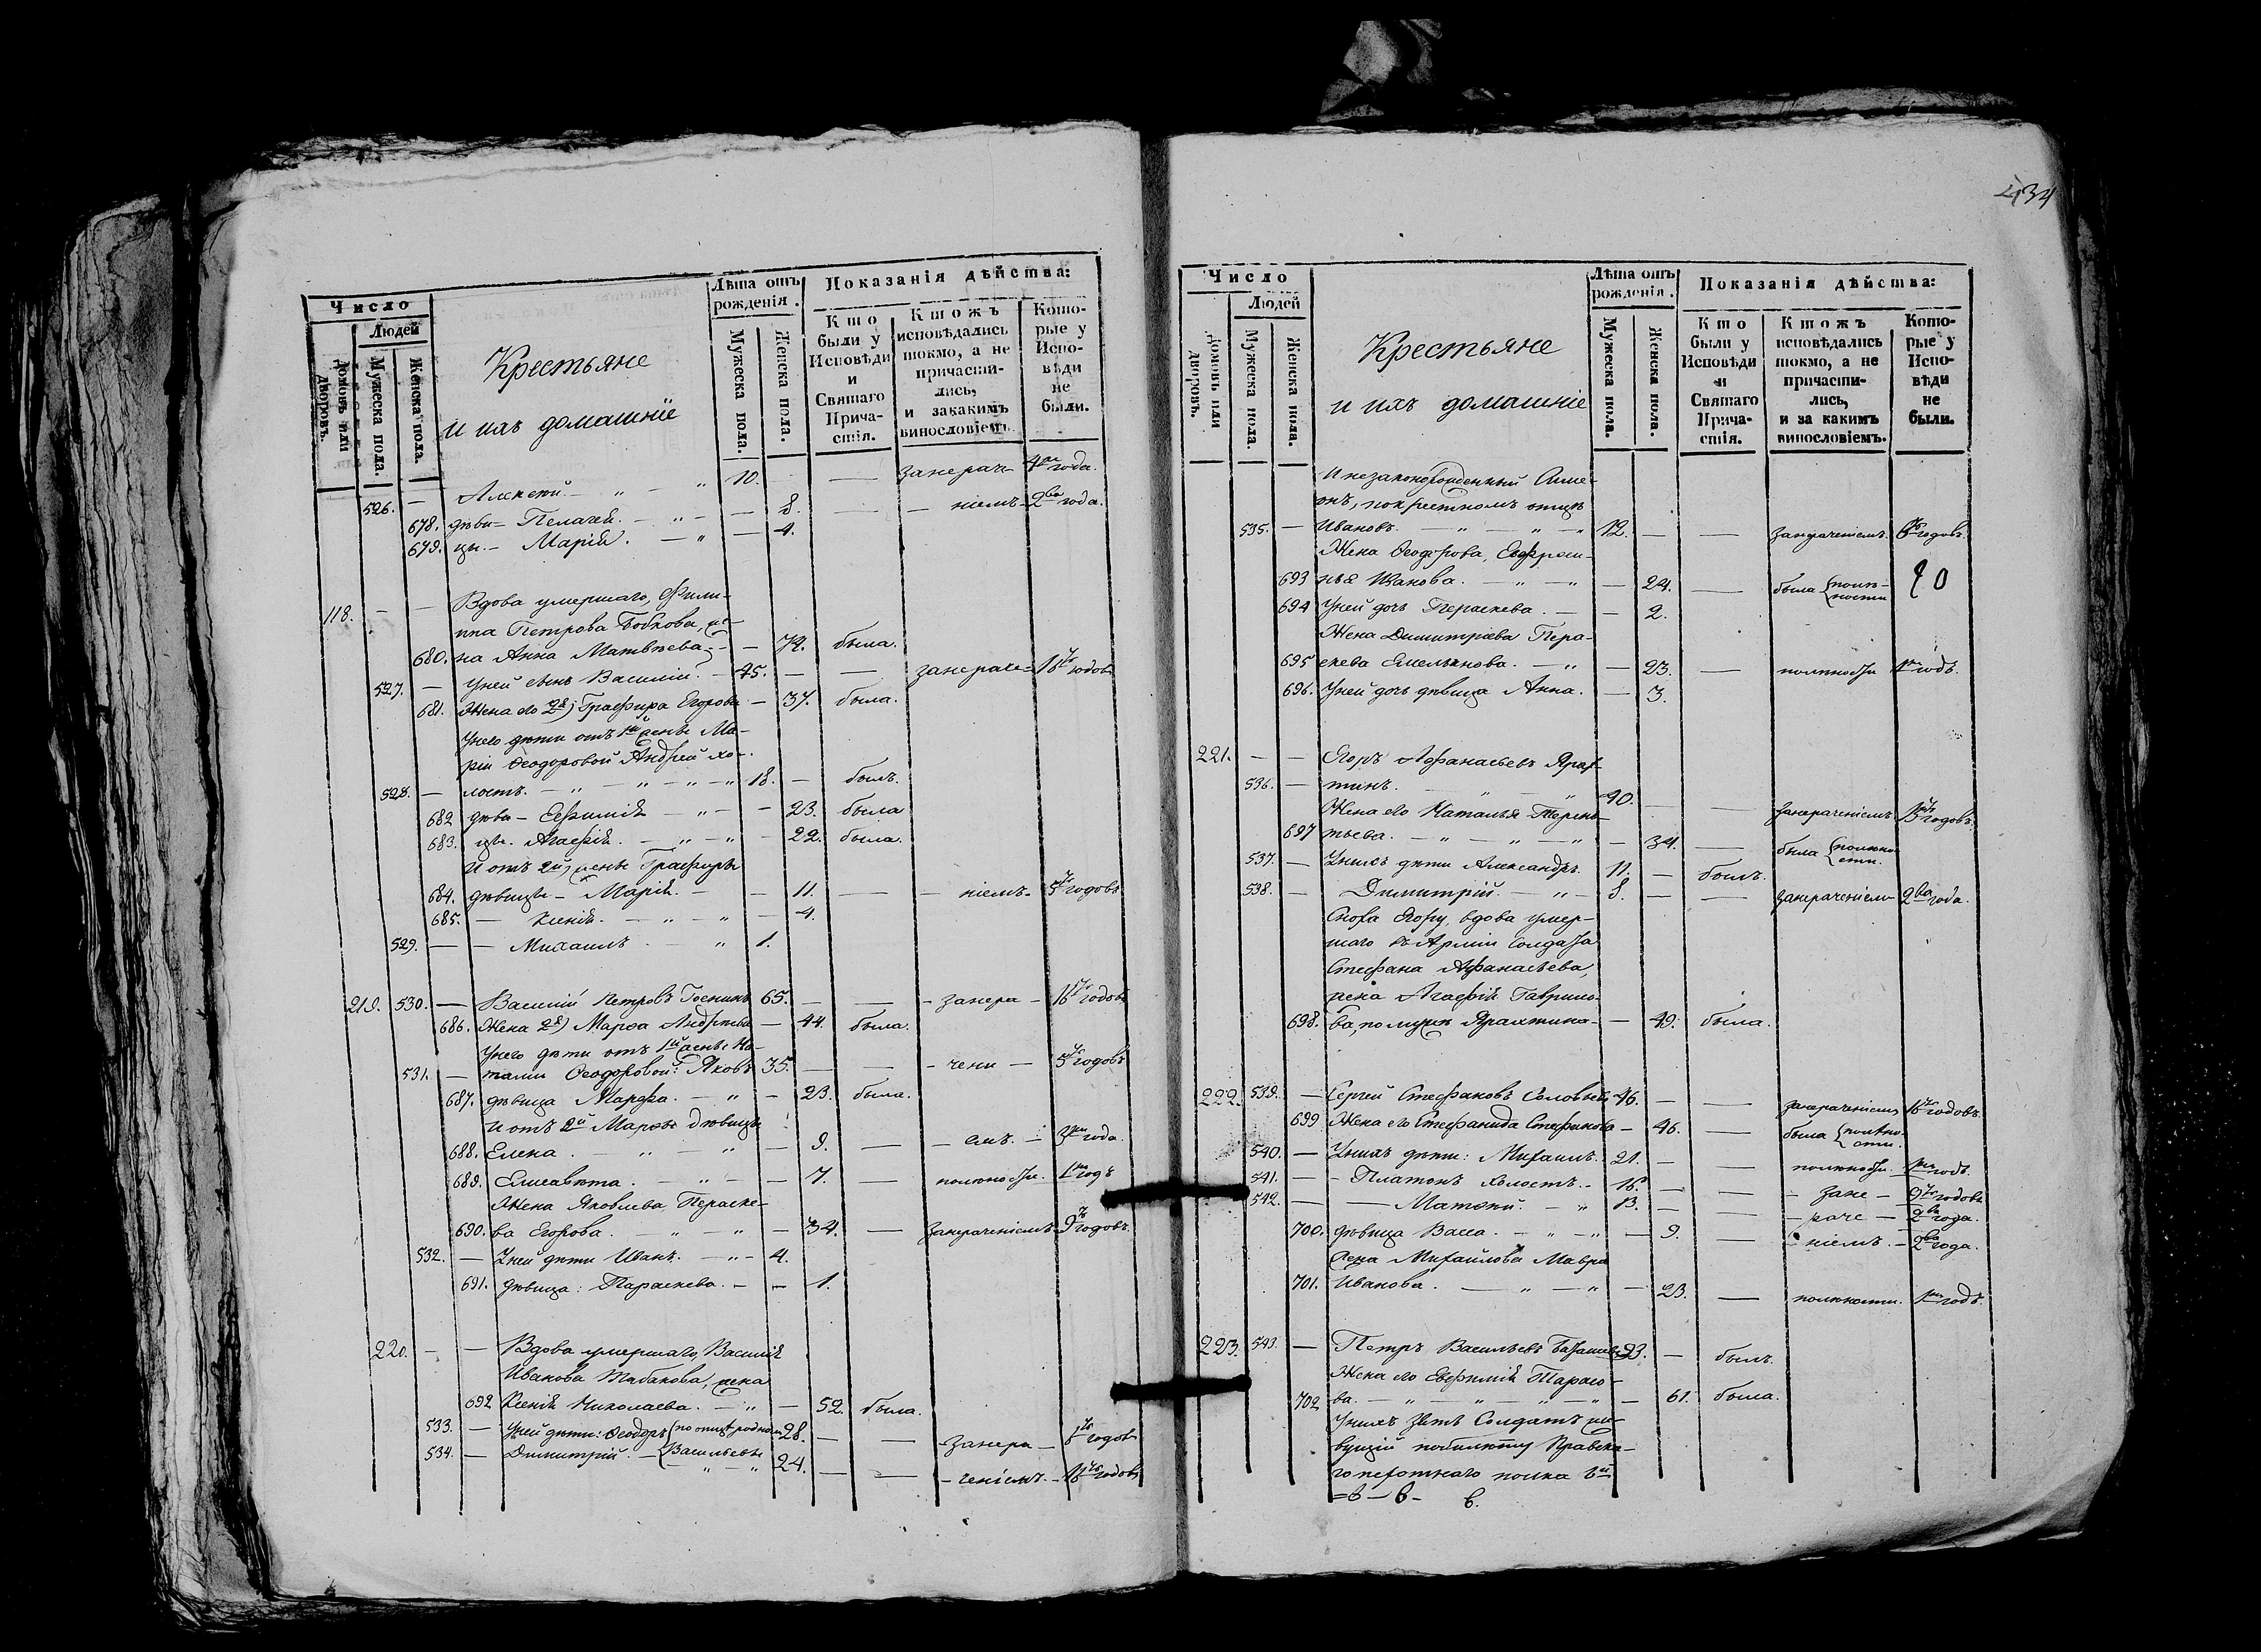 434
Число
Людей
домовъ или дворовъ.
Мужеска пола.
Женска пола.
Крестьяне
и ихъ домашніе
Лѣта отъ
рожденія.
Мужеска пола.
Женска пола.
Показанія дѣйства:
Кто были у Исповѣди и Святаго Прича- стія.
Ктожъ исповѣдались токмо, а не причасти- лись, и закакимъ винословіемъ.
Кото- рые у Испо- вѣди не были.
526. — Алексѣй. — „ — „ 10. — занерач- 4 года.
678. дѣви- Пелагея. — „ — — 8. — — ніемъ 2ва года.
679. цы.- Марія. — „ — 4.
118. — — Вдова умершаго, Фили-
ппа Петрова Бобкова, же-
680. на Анна Матвѣева. — — 72. была.
527. — У ней сынъ Василій. — 45. — — занераче- 16 годовъ
681. Жена его 2я) Глафира Егорова — 37. была.
У него дѣти отъ 1й жены Ма-
ріи Ѳеодоровой Андрей хо-
528. — лостъ. — „ — „ — „ — „ 18. — былъ.
682 дѣви- Евфимія — „ — — 23. была
683. цы. Агафія. — „ — „ — 22. была.
И отъ 2й жены Глафиры
684. дѣвицы — Марія. — — 11. — — ніемъ. 5 годовъ
685. — Ксенія. — „ — „ — 4.
529. — — Михаилъ. — „ 1.
219. 530. — Василій Петровъ 65. — — занера — 16 годовъ
686. Жена 2я) Марѳа Андреева — 44. была.
У него дѣти отъ 1й жены На-
531. — таліи Ѳеодоровой: Яковъ 35. — — чени — 5 годовъ
687. дѣвица Марфа. — „ — 23. была.
И отъ 2й Марѳы дѣвицы
688. Елена. — „ — „ — 9. — — емъ. — 3 года.
689. Елисавета. — „ — — 7. — полности. 1 годъ
Жена Яковлева, Пераске-
690. ва Егорова. — „ — „ — 34. — занераченіемъ 9 годовъ.
532. — У ней дѣти Иванъ. — „ — 4.
691. дѣвица: Параскева. — — 1.
220. — — Вдова умершаго, Василія
Иванова Табакова, жена
692 Ксенія Николаева. — „ — 52. была.
533. — У ней дѣти: Ѳеодоръ (по отцѣ родномъ 28. — — занера — годовъ
534. — Димитрій. — (Васильевы „ „ 24. — — ченіемъ. — 16 годовъ
Число
Людей
домовъ или дворовъ.
Мужеска пола.
Женска пола.
Крестьяне
и ихъ домашніе
Лѣта отъ
рожденія.
Мужеска пола.
Женска пола.
Показанія дѣйства:
Кто были у Исповѣди и Святаго Прича- стія.
Ктожъ исповѣдались токмо, а не причасти- лись, и за какимъ винословіемъ.
Кото- рые у Испо- вѣди не были.
И незаконорожденный Симе-
онъ, по крестномъ отцѣ
535. — Ивановъ. — „ — „ — „ 12. — — занераченіемъ. 6 годовъ.
Жена Ѳеодорова, Евфроси-
693 нья Иванова. — „ — „ — 24. — была {полн-
ности
694 У ней дочь Пераскева. — — 2.
Жена Димитріева Пера-
695 скева Емельянова. — „ — 23. — полности 1 годъ.
696. У ней дочь дѣвица Анна. — 3.
221. — — Егоръ Афанасьевъ
536. — — „ — „ 40. — — занераченіемъ годовъ.
Жена его Наталья Терен-
697 тьева. — „ — „ — „ — 34. — была {полно-
сти.
537. — У нихъ дѣти Александръ. 11. — былъ.
538. — Димитрій. — „ — 8. — — занераченіемъ 2ва года.
Сноха Егору, вдова умер-
шаго въ Арміи солдата
Стефана Афанасьева,
жена Агафія Гаврило-
698. ва, по мужѣ — 49. была.
222. 539. — Сергей Стефановъ Соловьевъ 46. — — занераченіемъ 16 годовъ.
699 Жена его Стефанида Стефанова — 46. — была {полно-
сти.
540. — У нихъ дѣти: Михаилъ. 21. — — полности. 1 годъ.
541. — — Платонъ холостъ. — 16. — — зане — 9 годовъ
542. — — Матвѣй. — „ 13. — — раче — 2ва года.
700. дѣвица Васса. — „ — „ — 9. — ніемъ. — 2ва года.
Жена Михайлова Мавра
701. Иванова. — „ — „ — 23. — полности. 1 годъ.
223. 543. — Петръ Васильевъ — былъ.
Жена его Евфимія Тарасо-
702 ва. — „ — „ — „ — „ — 61. была.
У нихъ зять Солдатъ жи-
вущій по билету
го пехотнаго полка